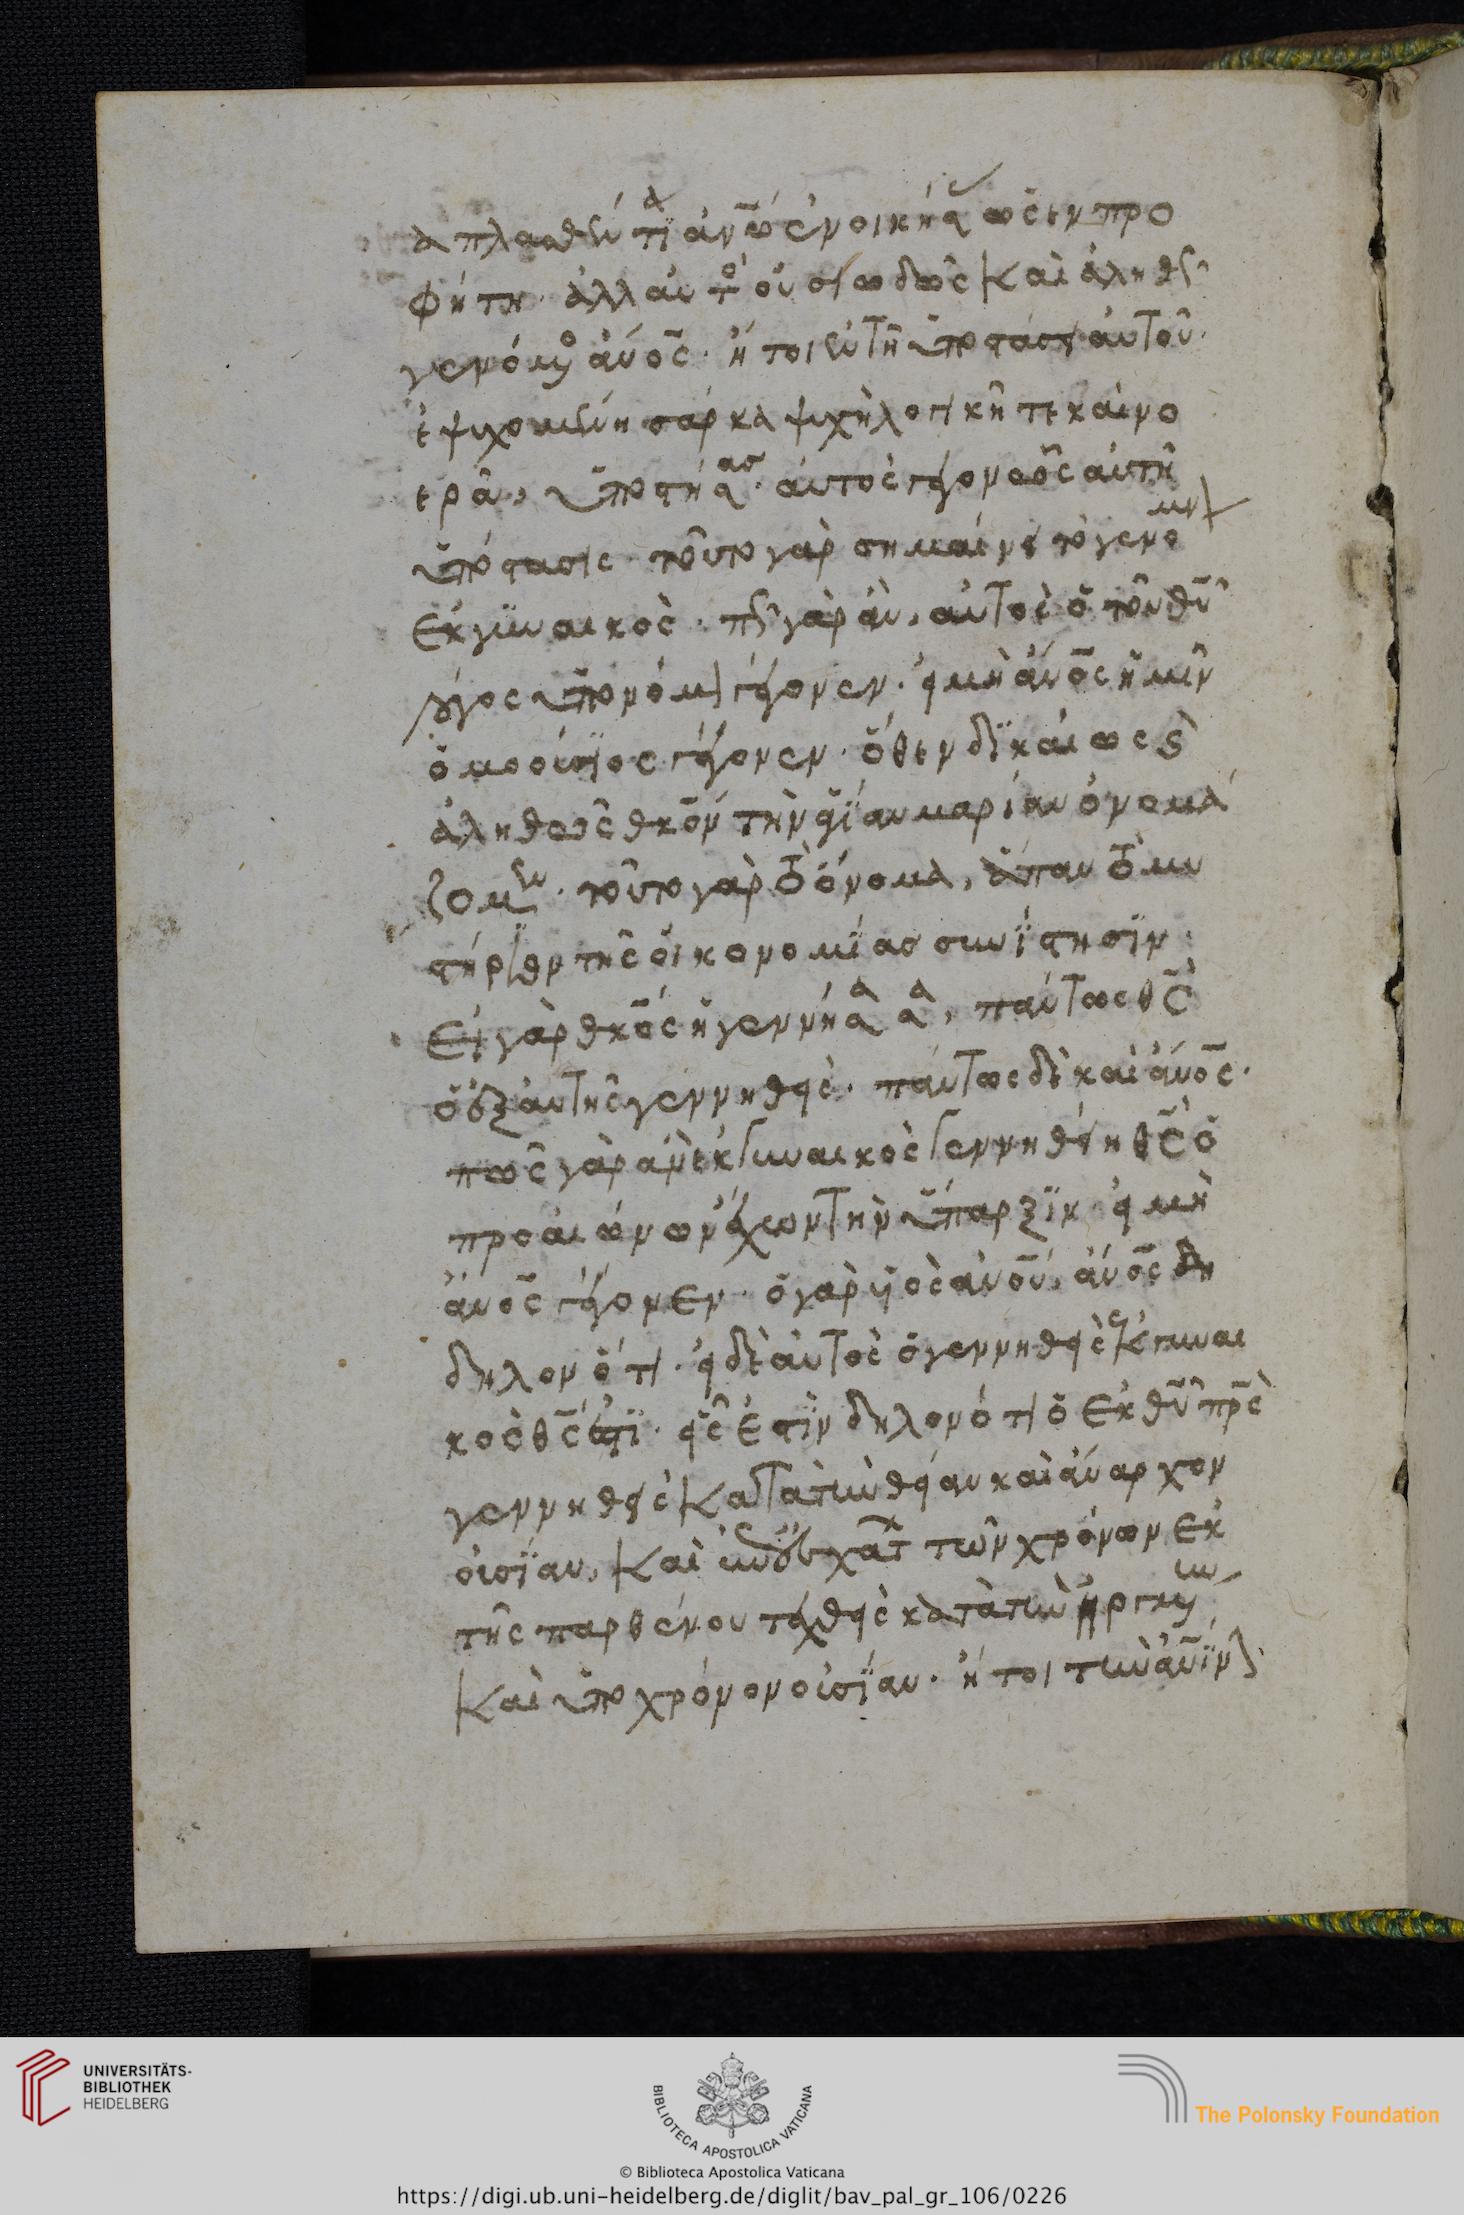 απλασθέντι ἀνῶ ἐνοικήσας ὡς ἐν προ
φήτη· ἀλλ' αὐτὸς οὐσιωδῶς καὶ ἀληθῶς
γενόμενος ἄνος· ἤτοι ἐν τῆ ὑποστάσει αὐτοῦ·
ἐψυχομένην σάρκα ψυχῆ λογικῆ τε καὶ νο
ερᾶ, ὑποστήσας· αὐτὸς γεγονὼς αὐτῆ
ὑπόστασις· τοῦτο γὰρ σημαίνει τὸ γενόμενον
ἐκ γυναικὸς· πῶς γὰρ ἂν, αὐτὸς ὁ τοῦ θῦ
λόγος ὑπὸ νόμον γέγονεν· εἰ μὴ ἄνος ἡμῖν
ὁμοούσιος γέγονεν· ὅθεν δικαίως καὶ
ἀληθῶς θκον τὴν ἁγίαν μαρίαν ὀνομά
ζομεν· τοῦτο γὰρ τὸ ὄνομα, ἅπαν τὸ μυ
στήριον τῆς οἰκονομίας συνίστησιν·
Εἰ γὰρ θκος ἡ γεννήσασα, πάντως θς
ὁ ἐξ αὐτῆς γεννηθεὶς· πάντως δὲ καὶ ἄνος·
πῶς γὰρ ἂν ἐκ γυναικὸς γεννηθείη θς ὁ
προαιώνων ἔχων τὴν ὕπαρξιν· εἰ μὴ
ἄνος γέγονεν· ὁ γὰρ υἱὸς ἀνου, ἄνος
δηλονότι· εἰ δὲ αὐτὸς ὁ γεννηθεὶς ἐκ γυναι
κὸς θς ἐστι· εἷς ἐστὶν δηλονότι ὁ ἐκ θῦ πρς
γεννηθεὶς κατὰ τὴν θείαν καὶ ἄναρχον
οὐσίαν, καὶ ἐπ' ἐσχάτων τῶν χρόνων ἐκ
τῆς παρθένου τεχθεὶς κατὰ τὴν ἠργμένην
καὶ ὑπὸ χρόνον οὐσίαν· ἤτοι τὴν ἀνίνην·
UNIVERSITÄTS-
BIBLIOTHEK
HEIDELBERG
BIBLIOTECA APOSTOLICA VATICANA
The Polonsky Foundation
© Biblioteca Apostolica Vaticana
https://digi.ub.uni-heidelberg.de/diglit/bav_pal_gr_106/0226